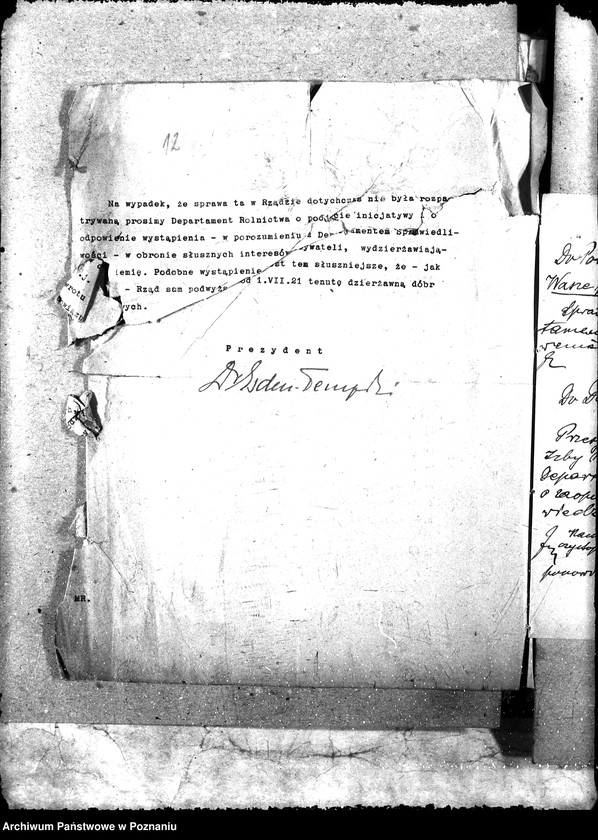 12
Na wypadek, że sprawa ta w Rządzie dotychczas nie była rozpa
trywaną prosimy Departament Rolnictwa o podjęcie inicjatywy i o
odpowienie wystąpienia - w porozumieniu z De amentem Sprawiedli-
wości - w obronie słusznych interesów ywateli, wydzierżawiają-
iemię. Podobne wystąpienie st tem słuszniejsze, że - jak
- Rząd sam podwyż od 1.VII.21 tenutę dzierżawną dóbr
ych.
Prezydent
MR.
Do
Warsz
Spra
tamen
Do D
Przes
Izby
Depar
o zaop
wiedz
ponow
Archiwum Państwowe w Poznaniu